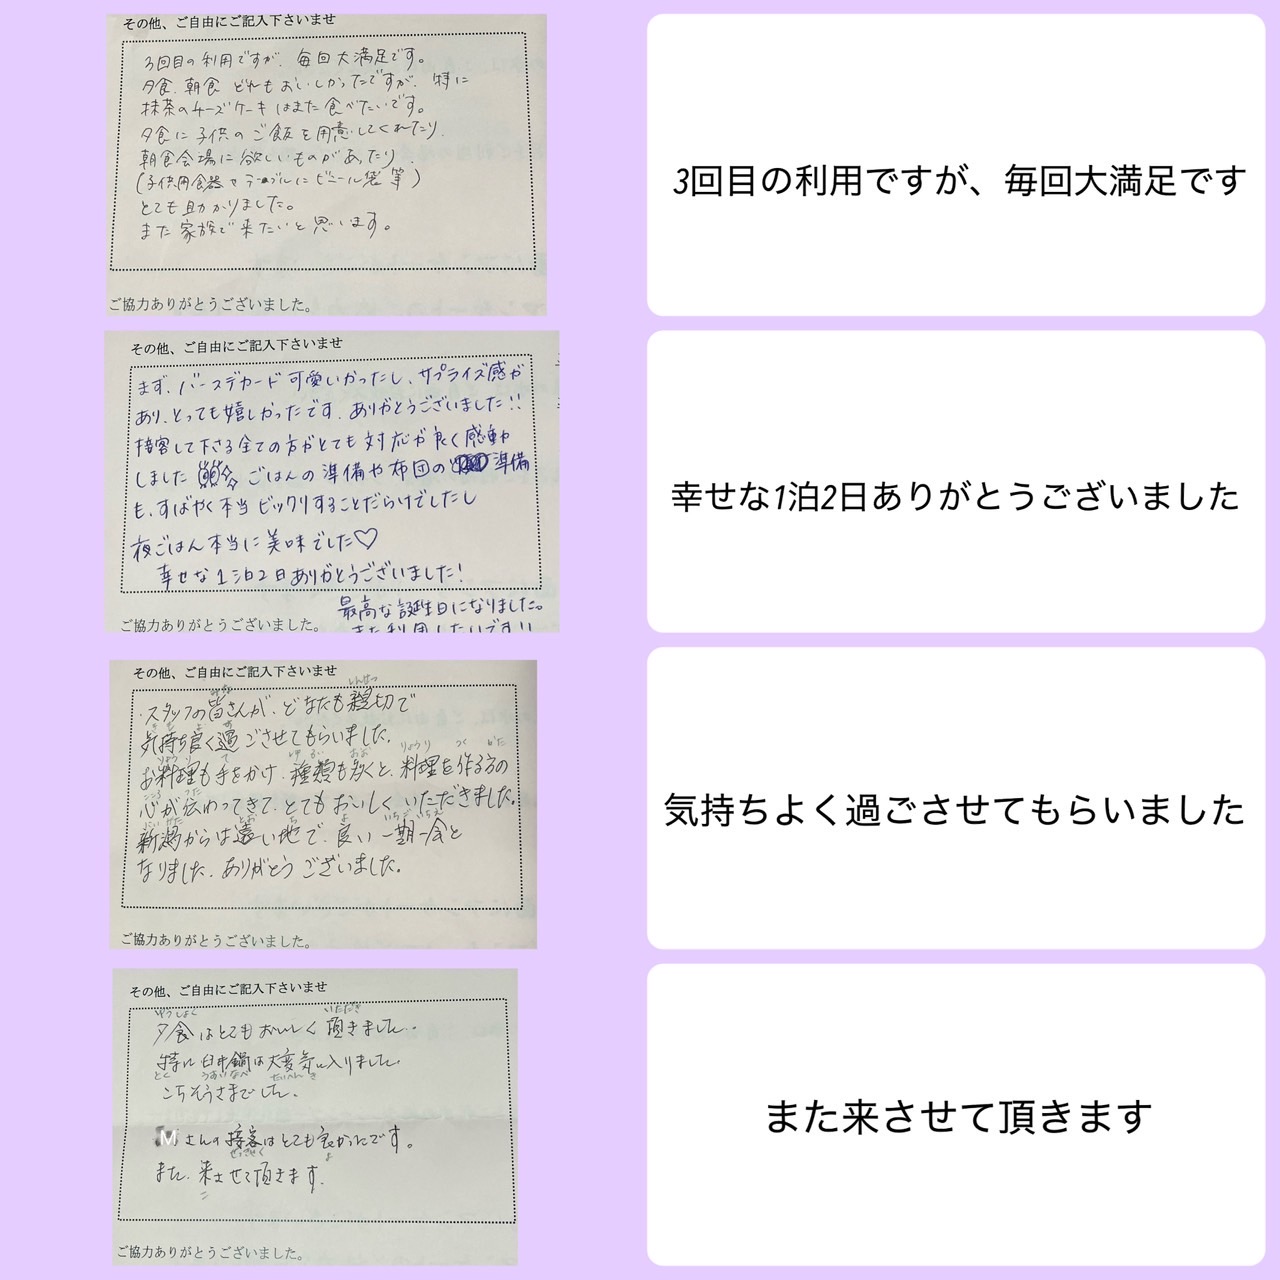 その他、ご自由にご記入下さいませ
3回目の利用ですが、毎回大満足です。
夕食、朝食 どれもおいしかったですが、特に
抹茶のチーズケーキはまた食べたいです。
夕食に子供のご飯を用意してくれたり、
朝食会場に欲しいものがあったり
(子供用食器やテーブルにビニール袋等)
とても助かりました。
また家族で来たいと思います。
ご協力ありがとうございました。
3回目の利用ですが、毎回大満足です
その他、ご自由にご記入下さいませ
まず、バースデカード可愛いかったし、サプライズ感が
あり、とっても嬉しかったです、ありがとうございました!!
接客して下さる全ての方がとても対応が良く感動
しました ごはんの準備や布団の 準備
も、すばやく本当ビックリすることだらけでしたし
夜ごはん本当に美味でした♡
幸せな1泊2日ありがとうございました!
最高な誕生日になりました。
また利用したいです!!
ご協力ありがとうございました。
幸せな1泊2日ありがとうございました
その他、ご自由にご記入下さいませ
みな しんせつ
スタッフの皆さんが、どなたも親切で
きも よ す
気持ち良く過ごさせてもらいました。
りょうり て しゅるい おお りょうり つく かた
お料理も手をかけ、種類も多くと、料理を作る方の
こころ つた
心が伝わってきて、とてもおいしくいただきました。
にいがた とお ち よ いちごいちえ
新潟からは遠い地で、良い一期一会と
なりました。ありがとうございました。
ご協力ありがとうございました。
気持ちよく過ごさせてもらいました
その他、ご自由にご記入下さいませ
ゆうしょく いただき
夕食はとてもおいしく頂きました。
特に臼井鍋は大変気に入りました。
とく うすいなべ たいへん き
ごちそうさまでした。
M さんの接客はとても良かったです。
せっきゃく よ
また、来させて頂きます。
こ
ご協力ありがとうございました。
また来させて頂きます